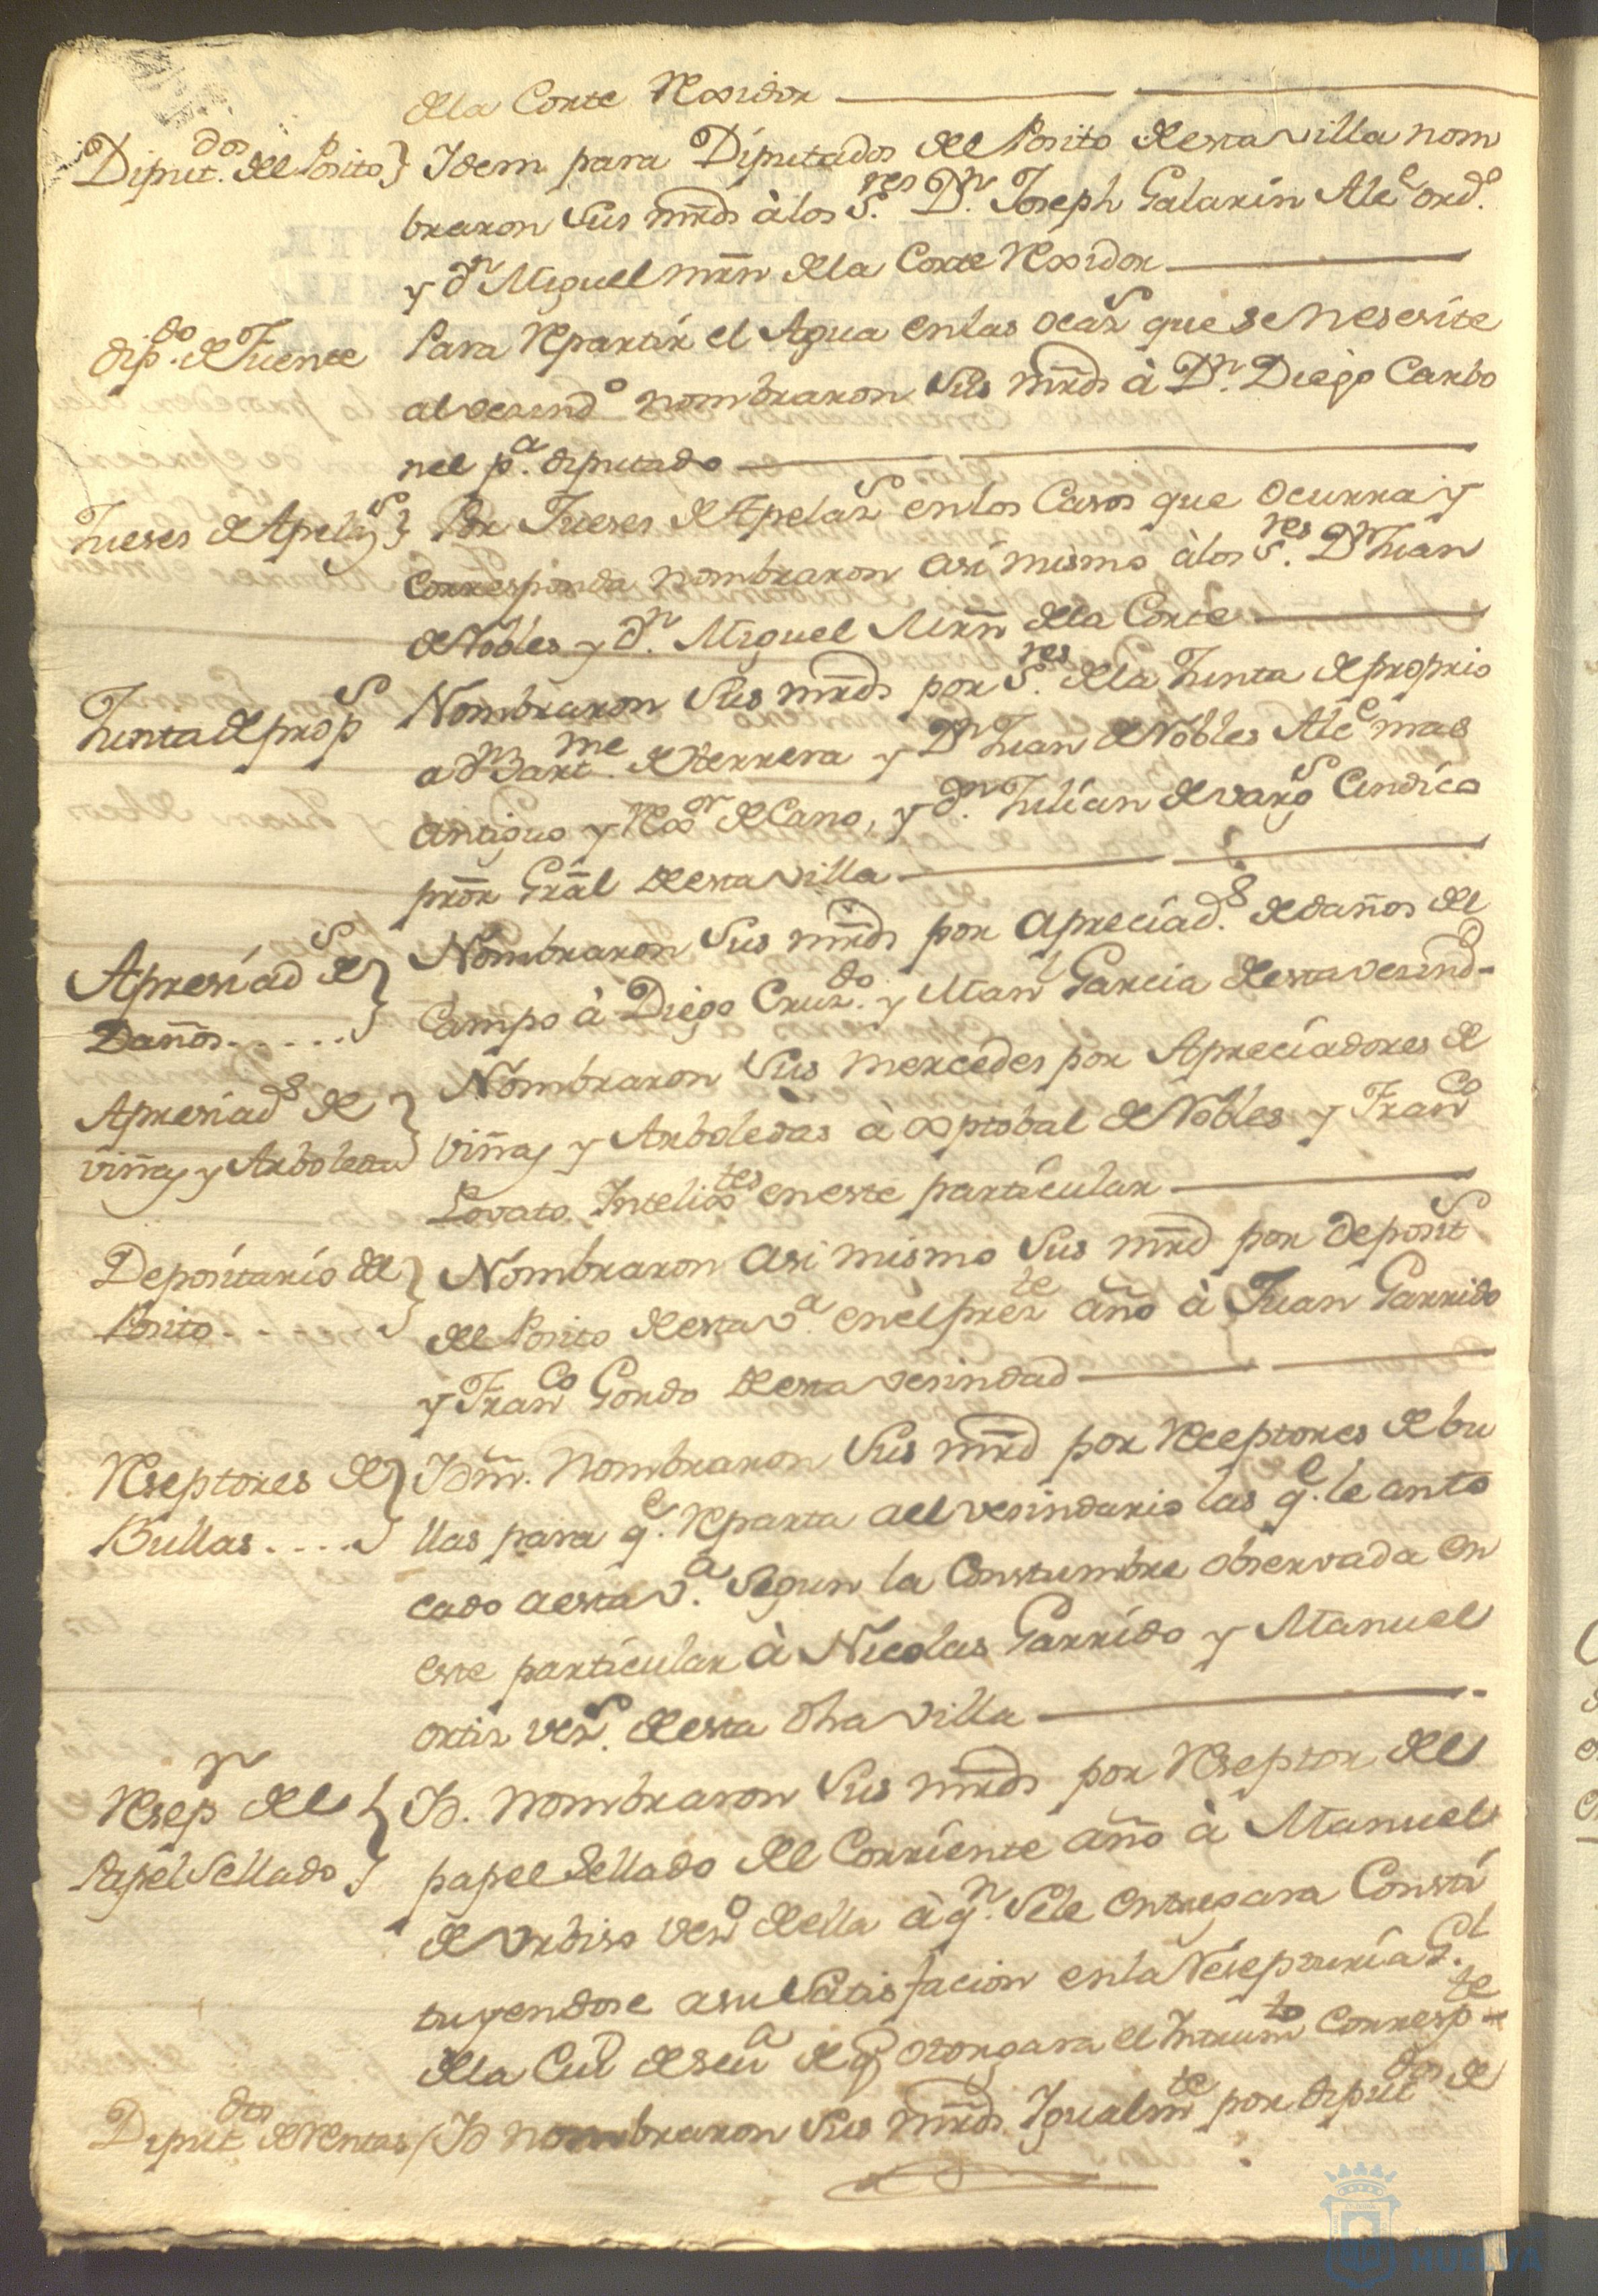 de la Corte Rexidor
Diput.dos del Posito } Idem para Diputados del Posito de esta villa nom
braron sus mrds à los S.res Dn. Joseph Galarin Alce ord.o
y dn Miguel mrn de la Corte Rexidor
dip.do de Fuente Para Repartir el Agua en las ocazs que se Nesesite
al vesindo nombraron sus mrds à Dn. Diego Carbo
nel p.a diputado
Jueses de Apelazs } Por Jueses de Apelazs en los Casos que ocurra y
corresponda nombraron asi mismo à los S.res Dn Juan
de Nobles y dn. Miguel Mrn de la Corte
Junta de props Nombraron sus mrds por S.res de la Junta de proprio
a dn Bartme. de Herrera y Dn Juan de Nobles Alce mas
antiguo y Rexor de Cano, y dn. Julian de vargs Cindico
pror Gral de esta villa
Apresiads de } Nombraron sus mrds por apreciad.s de daños del
Daños..... Campo à Diego Cruz.do y Manl Garcia de esta vesindd
Apresiads de } Nombraron sus mercedes por Apreciadores de
viñas y Arboledas viñas y Arboledas à Xptobal de Nobles y Franco
Lovato Intelixtes en este particular
Depositario del } Nombraron asi mismo sus mrd por deposits
Posito.. del Posito de esta v.a en el prezte año à Juan Garrido
y Franco Gordo de esta vesindad
Reseptores de } Ittm. Nombraron sus mrd por Receptores de bu
Bullas.... llas para q.e Reparta al el vesindario las q.e le anto
cado a esta v.a segun la Constumbre observada en
este particular à Nicolas Garrido y Manuel
ortiz vezs. de esta dha villa
Resepr del } It. nombraron sus mrds por Reseptor del
Papel Sellado papel Sellado del Corriente año à Manuel
de Urbiso veso de ella à q.n se le entregara Consti
tuyendose a su Satisfacion en la Resepturia G.l
de la Ciud de seva de q otorgara el Instrumto Correspte
Diputdos de Rentas / It nombraron sus mrds Igualmte por diputdos de
HUELVA